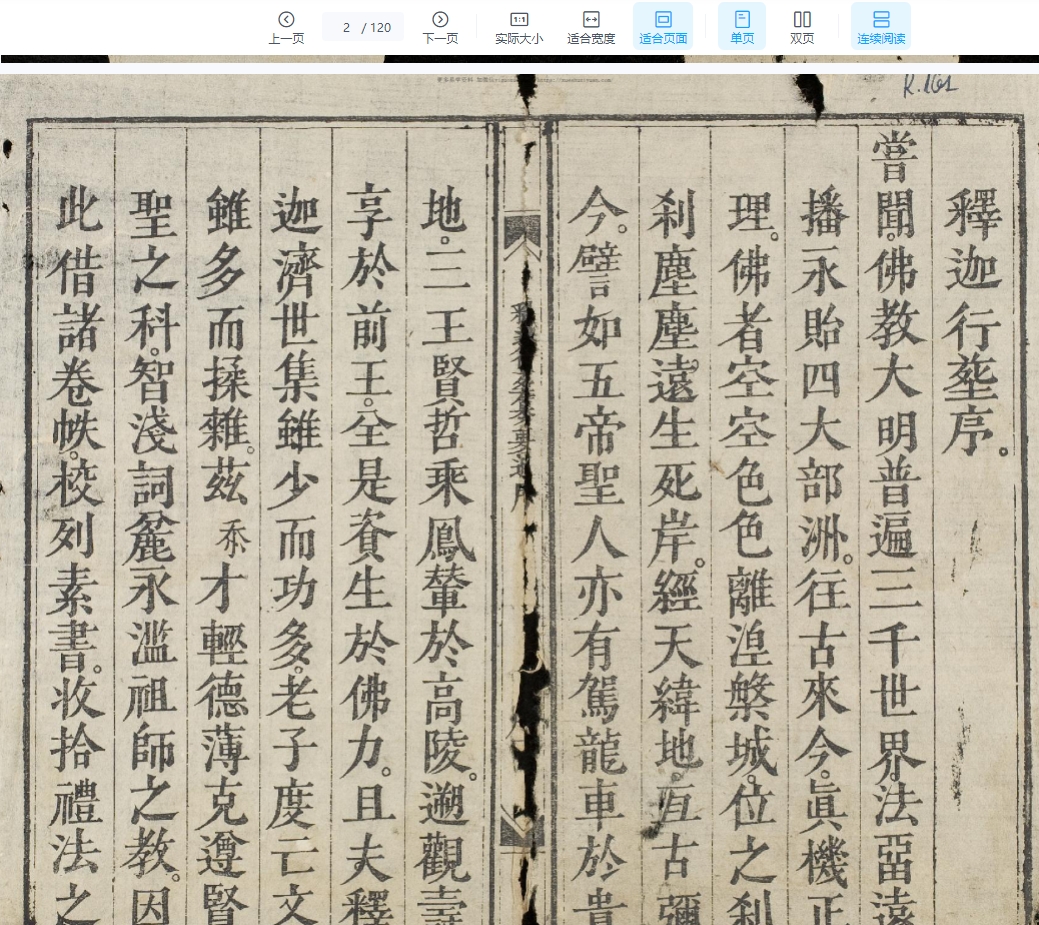 上一页
2 / 120
下一页
实际大小
适合宽度
适合页面
单页
双页
连续阅读
R.161
釋迦行𦵏序。
嘗聞。佛教大明普遍三千世界。法畱遠
播永貽四大部洲。徃古來今。眞機正
理。佛者空空色色離湼槃城。位之刹
刹塵塵。遠生死岸。經天緯地。亘古彌
今。譬如五帝聖人亦有駕龍車於貴
地。三王賢哲乘鳳輦於高陵。遡觀壽
享於前王。全是資生於佛力。且夫釋
迦濟世集雖少而功多。老子度亡文
雖多而揉雜。茲忝才輕德薄克遵賢
聖之科。智淺詞麄永滥祖師之教。因
此借諸卷帙。校列素書。收拾禮法之